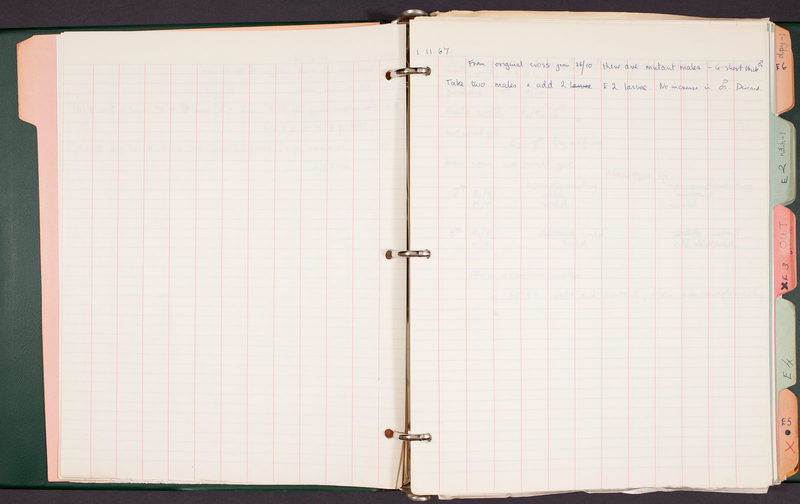 1 11 67.
From original cross from 26/10 there are mutant males - is short thick ♂
Take two males & add 2 larvae E2 larvae. No increase in ♂. Discard
E6 dpy-1
E2
E3
E
E5
X